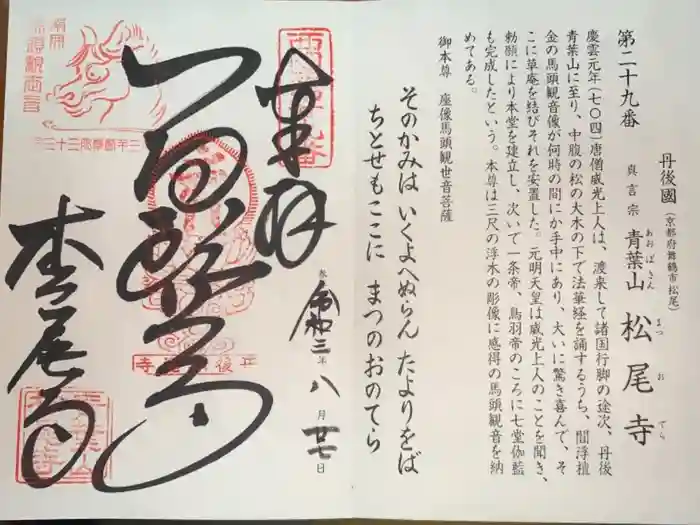 第二十九番
丹後國(京都府舞鶴市松尾)
真言宗 青葉山 松尾寺
あおばさん まつおでら
慶雲元年(七〇四)唐僧威光上人は、渡来して諸国行脚の途次、丹後
青葉山に至り、中腹の松の大木の下で法華経を誦するうち、閻浮檀
金の馬頭観音像が何時の間にか手中にあり、大いに驚き喜んで、そ
こに草庵を結びそれを安置した。元明天皇は威光上人のことを聞き、
勅願により本堂を建立し、次いで一条帝、鳥羽帝のころに七堂伽藍
も完成したという。本尊は三尺の浮木の彫像に感得の馬頭観音を納
めてある。
御本尊 座像馬頭観世音菩薩
そのかみは いくよへぬらん たよりをば
ちとせもここに まつのおのてら
奉拝
令和三年八月廿七日
松尾寺